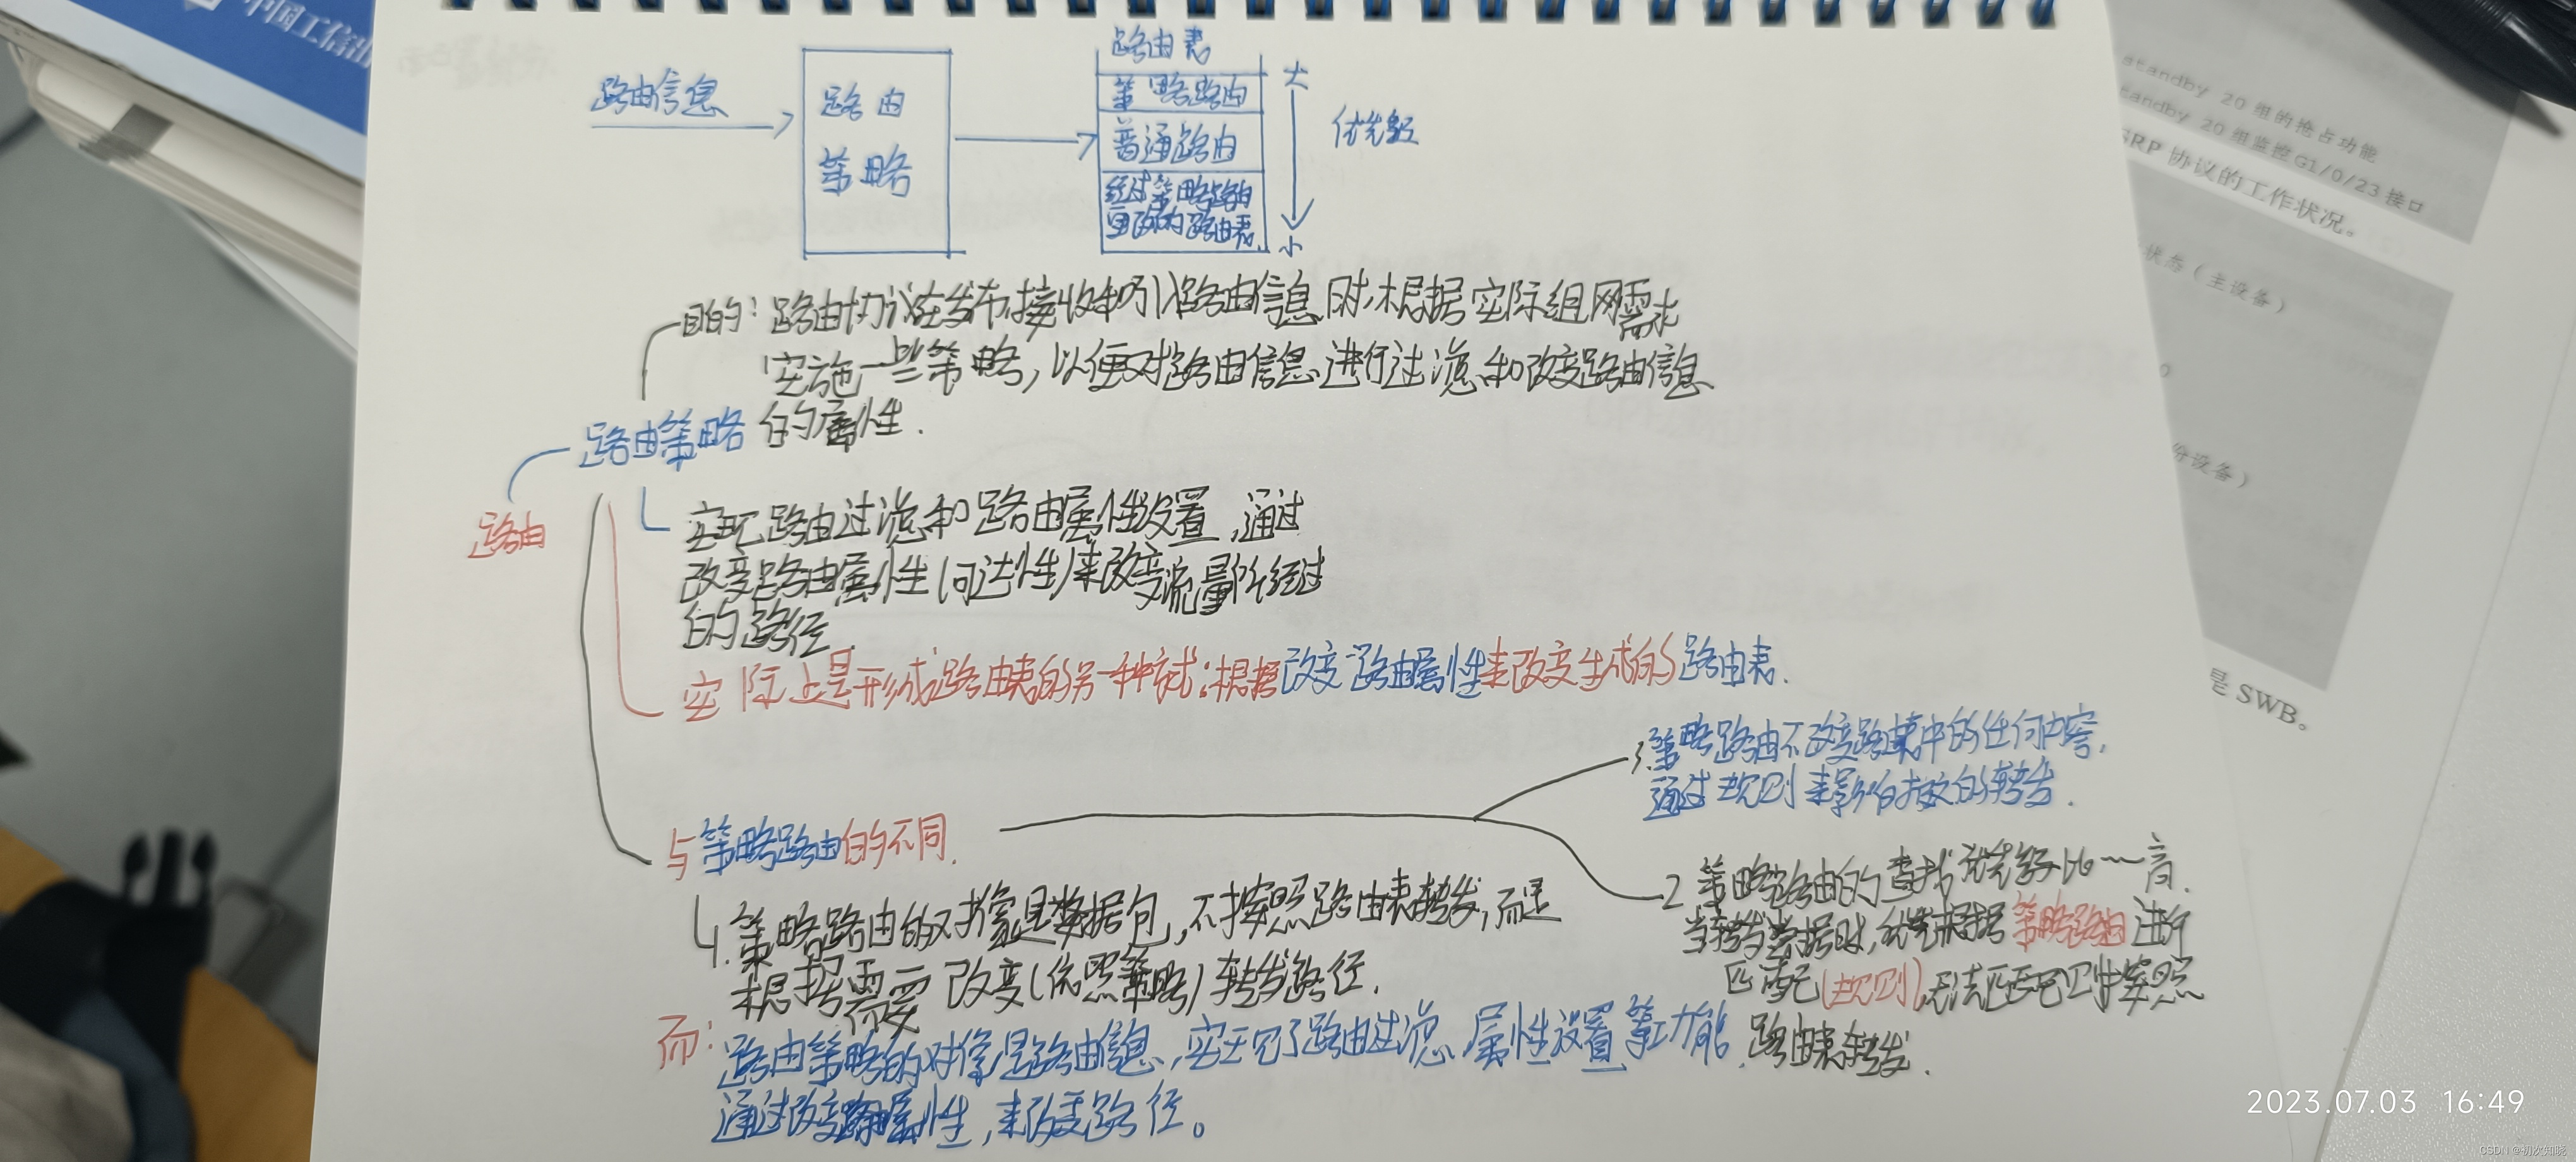 中国工信出
路由信息
路由
策略
路由表
策略路由
普通路由
经过策略路由
更改的路由表
大
优先级
小
目的：路由协议在发布,接收和引入路由信息时,根据实际组网需求
实施一些策略，以便对路由信息进行过滤和改变路由信息
路由策略
的属性.
路由
实现路由过滤和路由属性设置,通过
改变路由属性(可达性)来改变流量所经过
的路径.
实际上是形成路由表的另一种方式:根据改变路由属性来改变生成的路由表.
与策略路由的不同.
1.策略路由的对象是数据包,不按照路由表转发,而是
根据需要改变(依照策略)转发路径.
而:
路由策略的对像是路由信息,实现了路由过滤、属性设置等功能.
通过改变路由属性,来改变路径。
3.策略路由不改变路由表中的任何内容,
通过规则来影响报文的转发.
2 策略路由的查找优先级比一一高.
当转发数据时,优先根据策略路由进行
匹配(规则),无法匹配则按照
路由表转发.
standby 20 组的抢占功能
tandby 20 组监控 G1/0/23 接口
SRP 协议的工作状况。
状态（主设备）
份设备）
是 SWB。
2023.07.03 16:49
CSDN @初次知晓